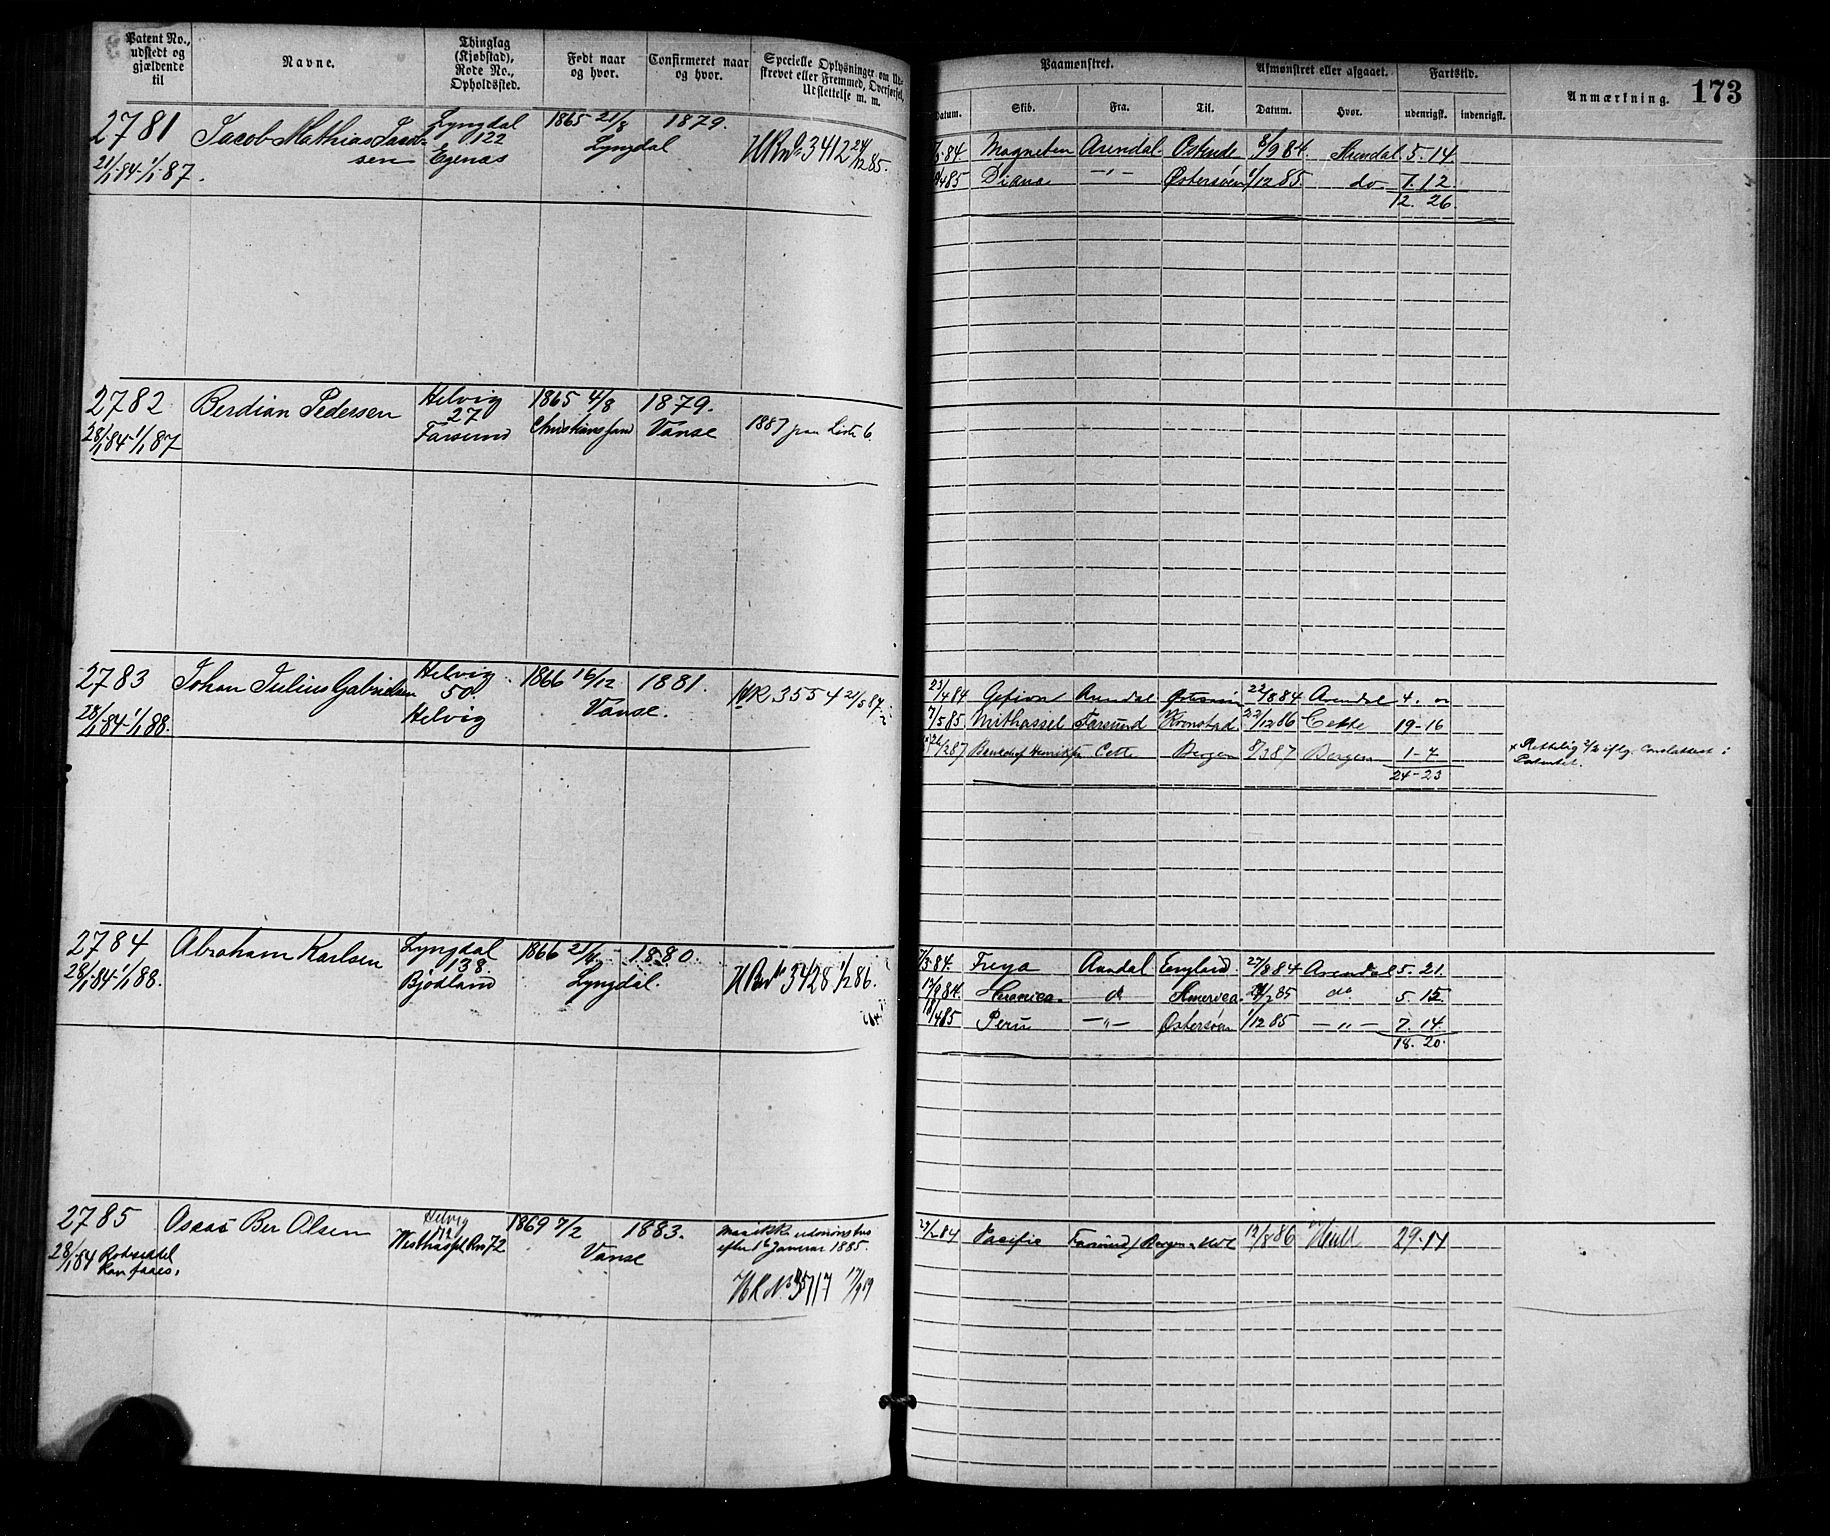 Patent No., udstedt og gjældende til
Navne.
Thinglag (Kjøbstad), Rode No., Opholdssted.
Født naar og hvor.
Confirmeret naar og hvor.
Specielle Oplysninger om Ud-
skrevet eller Fremmed, Overførsel,
Udslettelse m. m.
Paamønstret.
Afmønstret eller afgaaet.
Fartstid.
Anmærkning.
173
Datum.
Skib.
Fra.
Til.
Datum.
Hvor.
udenrigsk.
indenrigsk.
2781
21/1 84-1/1 87.
Jacob Mathias Jacob-
sen
Lyngdal
122
Egenæs
1865 21/8
1879.
Lyngdal
3412 24/12 85.
84 Magneten Arendal 8/9 84 Arendal 5. 14
485 Diana -"- Østersøen 1/12 85. do 7. 12
12. 26
2782
28/1 84-1/1 87
Berdian Pedersen
Helvig
27
Farsund
1865 4/8
Christianssand
1879.
Vanse
1887 paa Liste 6.
2783
28/1 84-1/1 88.
Johan Julius Gabrielsen
Helvig
50
Helvig
1866 16/12
1881.
Vanse.
3554 21/5 87
23/4 84 Gefion Arendal 22/8 84 Arendal 4.
7/5 85 Farsund Kronstad 22/12 86 Cette 19-16
2/2 87 Cette Bergen 8/3 87 Bergen 1-7
24-23
2784
28/1 84-1/1 88.
Abraham Karlsen
Lyngdal
138
Bjødland
1866 21/4
1880
Lyngdal.
3428 1/2 86.
7/3 84. Freya Arendal England. 27/8 84 Arendal 5. 21
17/9 84. do 85 do 5. 15
18/4 85 Peru -"- Østersøen 1/12 85 -"- 7. 14
18. 20.
2785
28/1 84 Rodseddel
kan faaes.
Oscar Ber Olsen
Helvig
72
1869 7/2
1883.
Vanse
Maa ikke udmønstres
efter 1 Januar 1885.
3717
27/2 84 Pacific Farsund 12/8 86 Hull 29-14